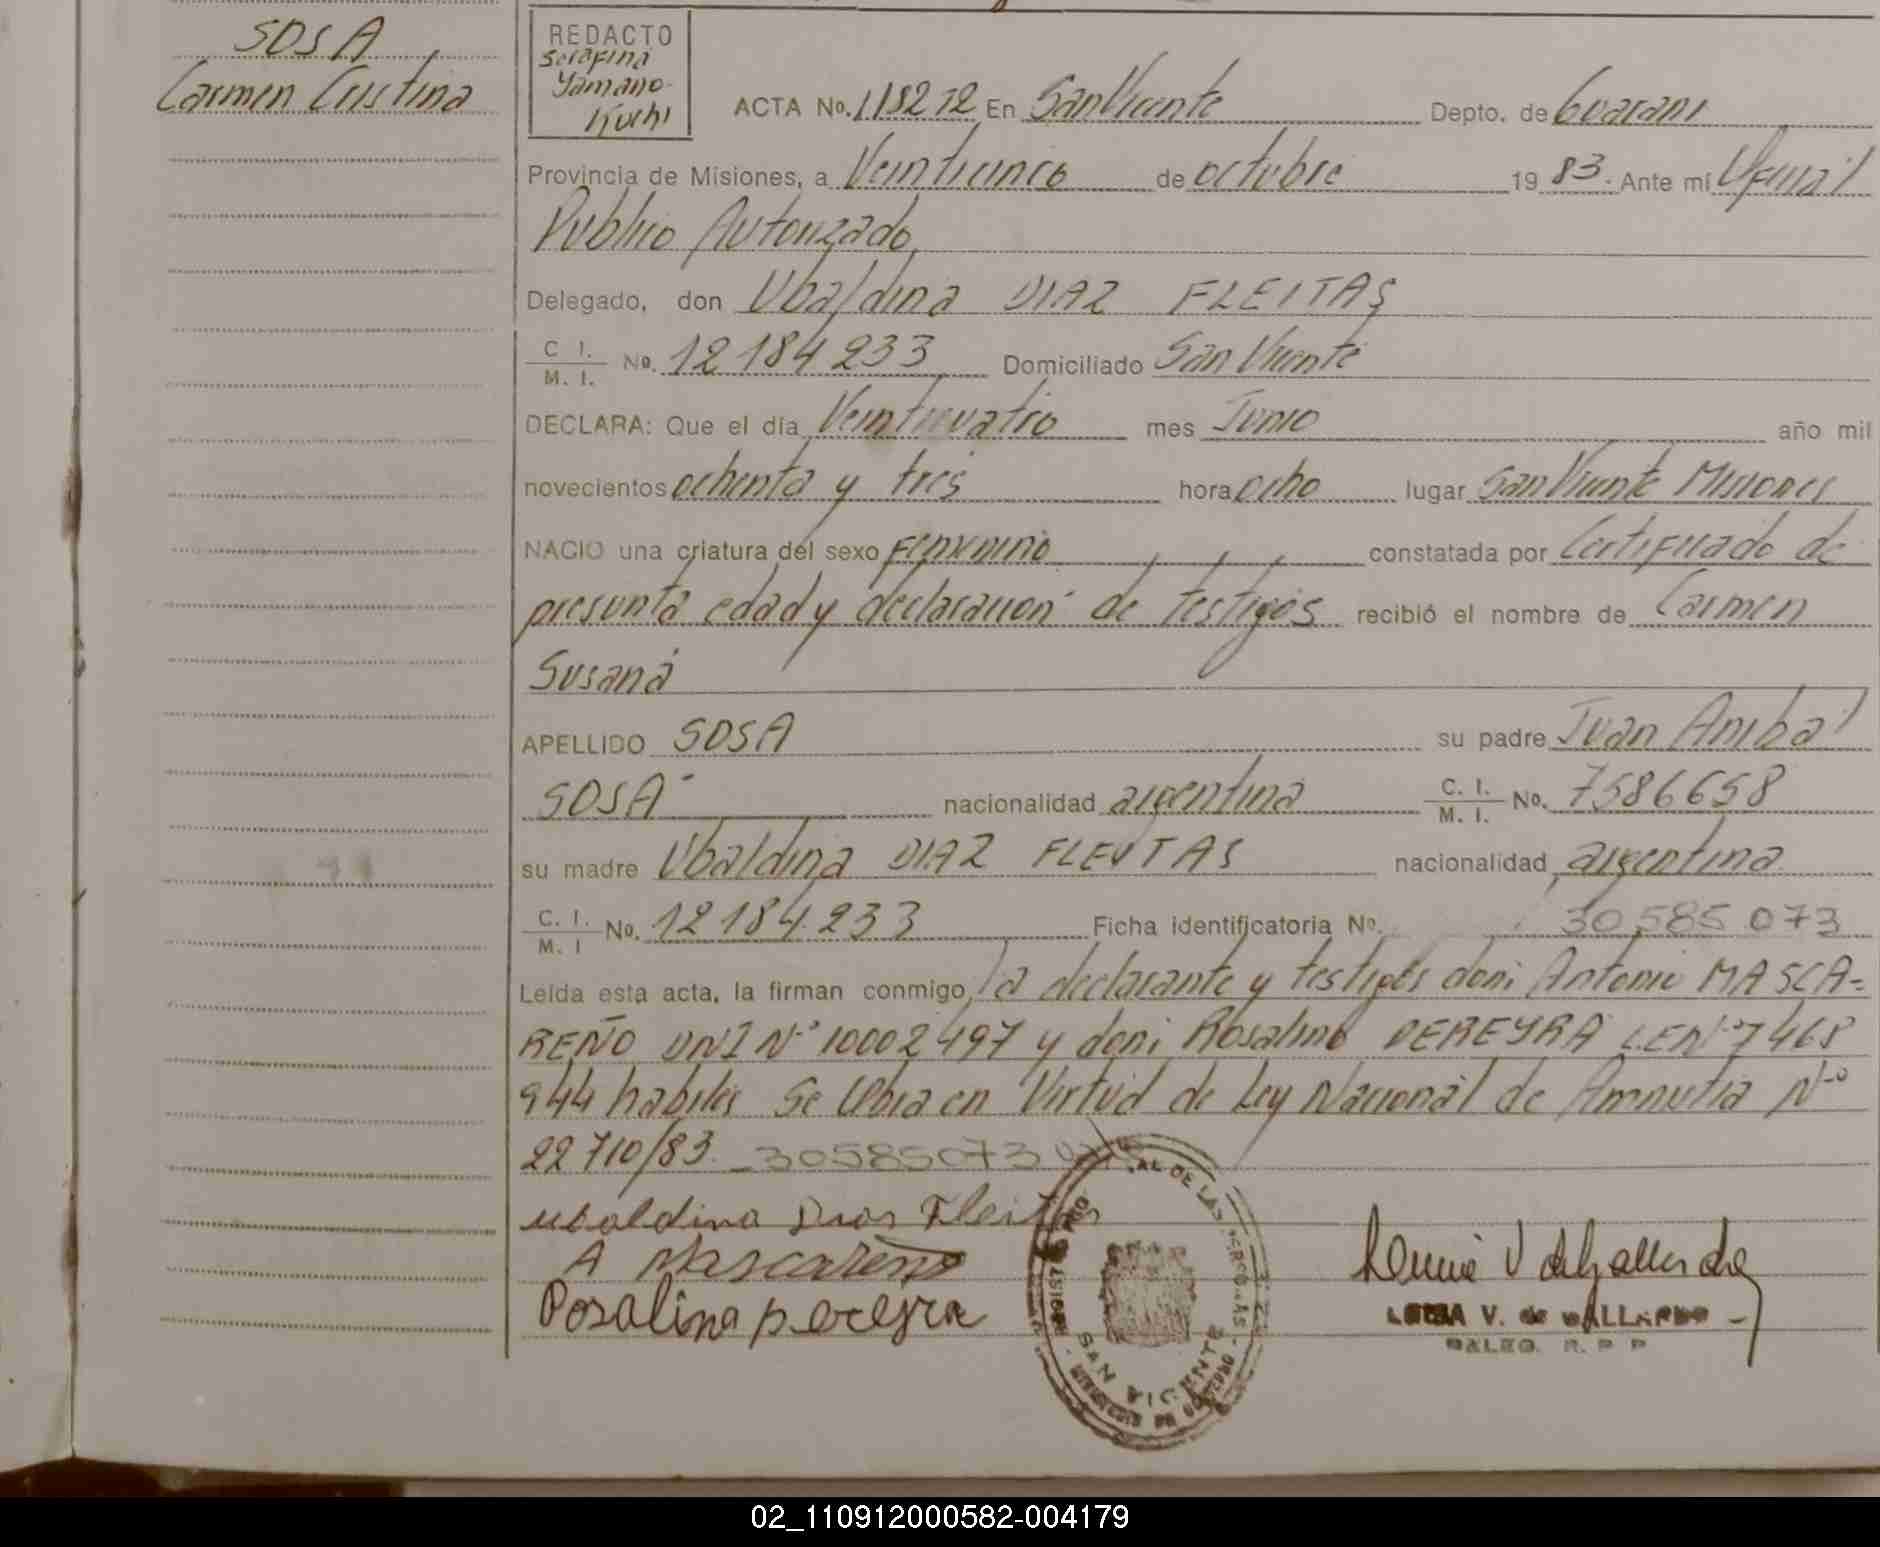 SOSA
Carmen Cristina
REDACTO
Serafina
Yamano-
Kuchi
ACTA No. 118272 En San Vicente Depto. de Guarani
Provincia de Misiones, a Veinticinco de octubre 19 83. Ante mí Oficial
Publico Autorizado
Delegado, don Ubaldina DIAZ FLEITAS
C I. / M. I. No. 12184233 Domiciliado San Vicente
DECLARA: Que el día Veinticuatro mes Junio año mil
novecientos ochenta y tres hora ocho lugar San Vicente Misiones
NACIO una criatura del sexo femenino constatada por Certificado de
presunta edad y declaracion de testigos recibió el nombre de Carmen
Susana
APELLIDO SOSA su padre Juan Anibal
SOSA nacionalidad argentina C. I. / M. I. No. 7586658
su madre Ubaldina DIAZ FLEYTAS nacionalidad argentina
C. I. / M. I No. 12184.233 Ficha identificatoria No. 30585073
Leída esta acta, la firman conmigo, la declarante y testigos don: Antonio MASCA-
REÑO DNI Nº 10002497 y don: Rosalino PEREYRA LE Nº 7468
944 habiles Se labra en Virtud de Ley Nacional de Amnistia Nº
22710/83. 30585073
Ubaldina Dias Fleitas
A Mascareño
Rosalino pereyra
AL DE LAS PERSONAS
SAN VICENTE
MINISTERIO DE GOBIERNO
LUISA V. de GALLARDO
DALEG. R. P P
02_110912000582-004179